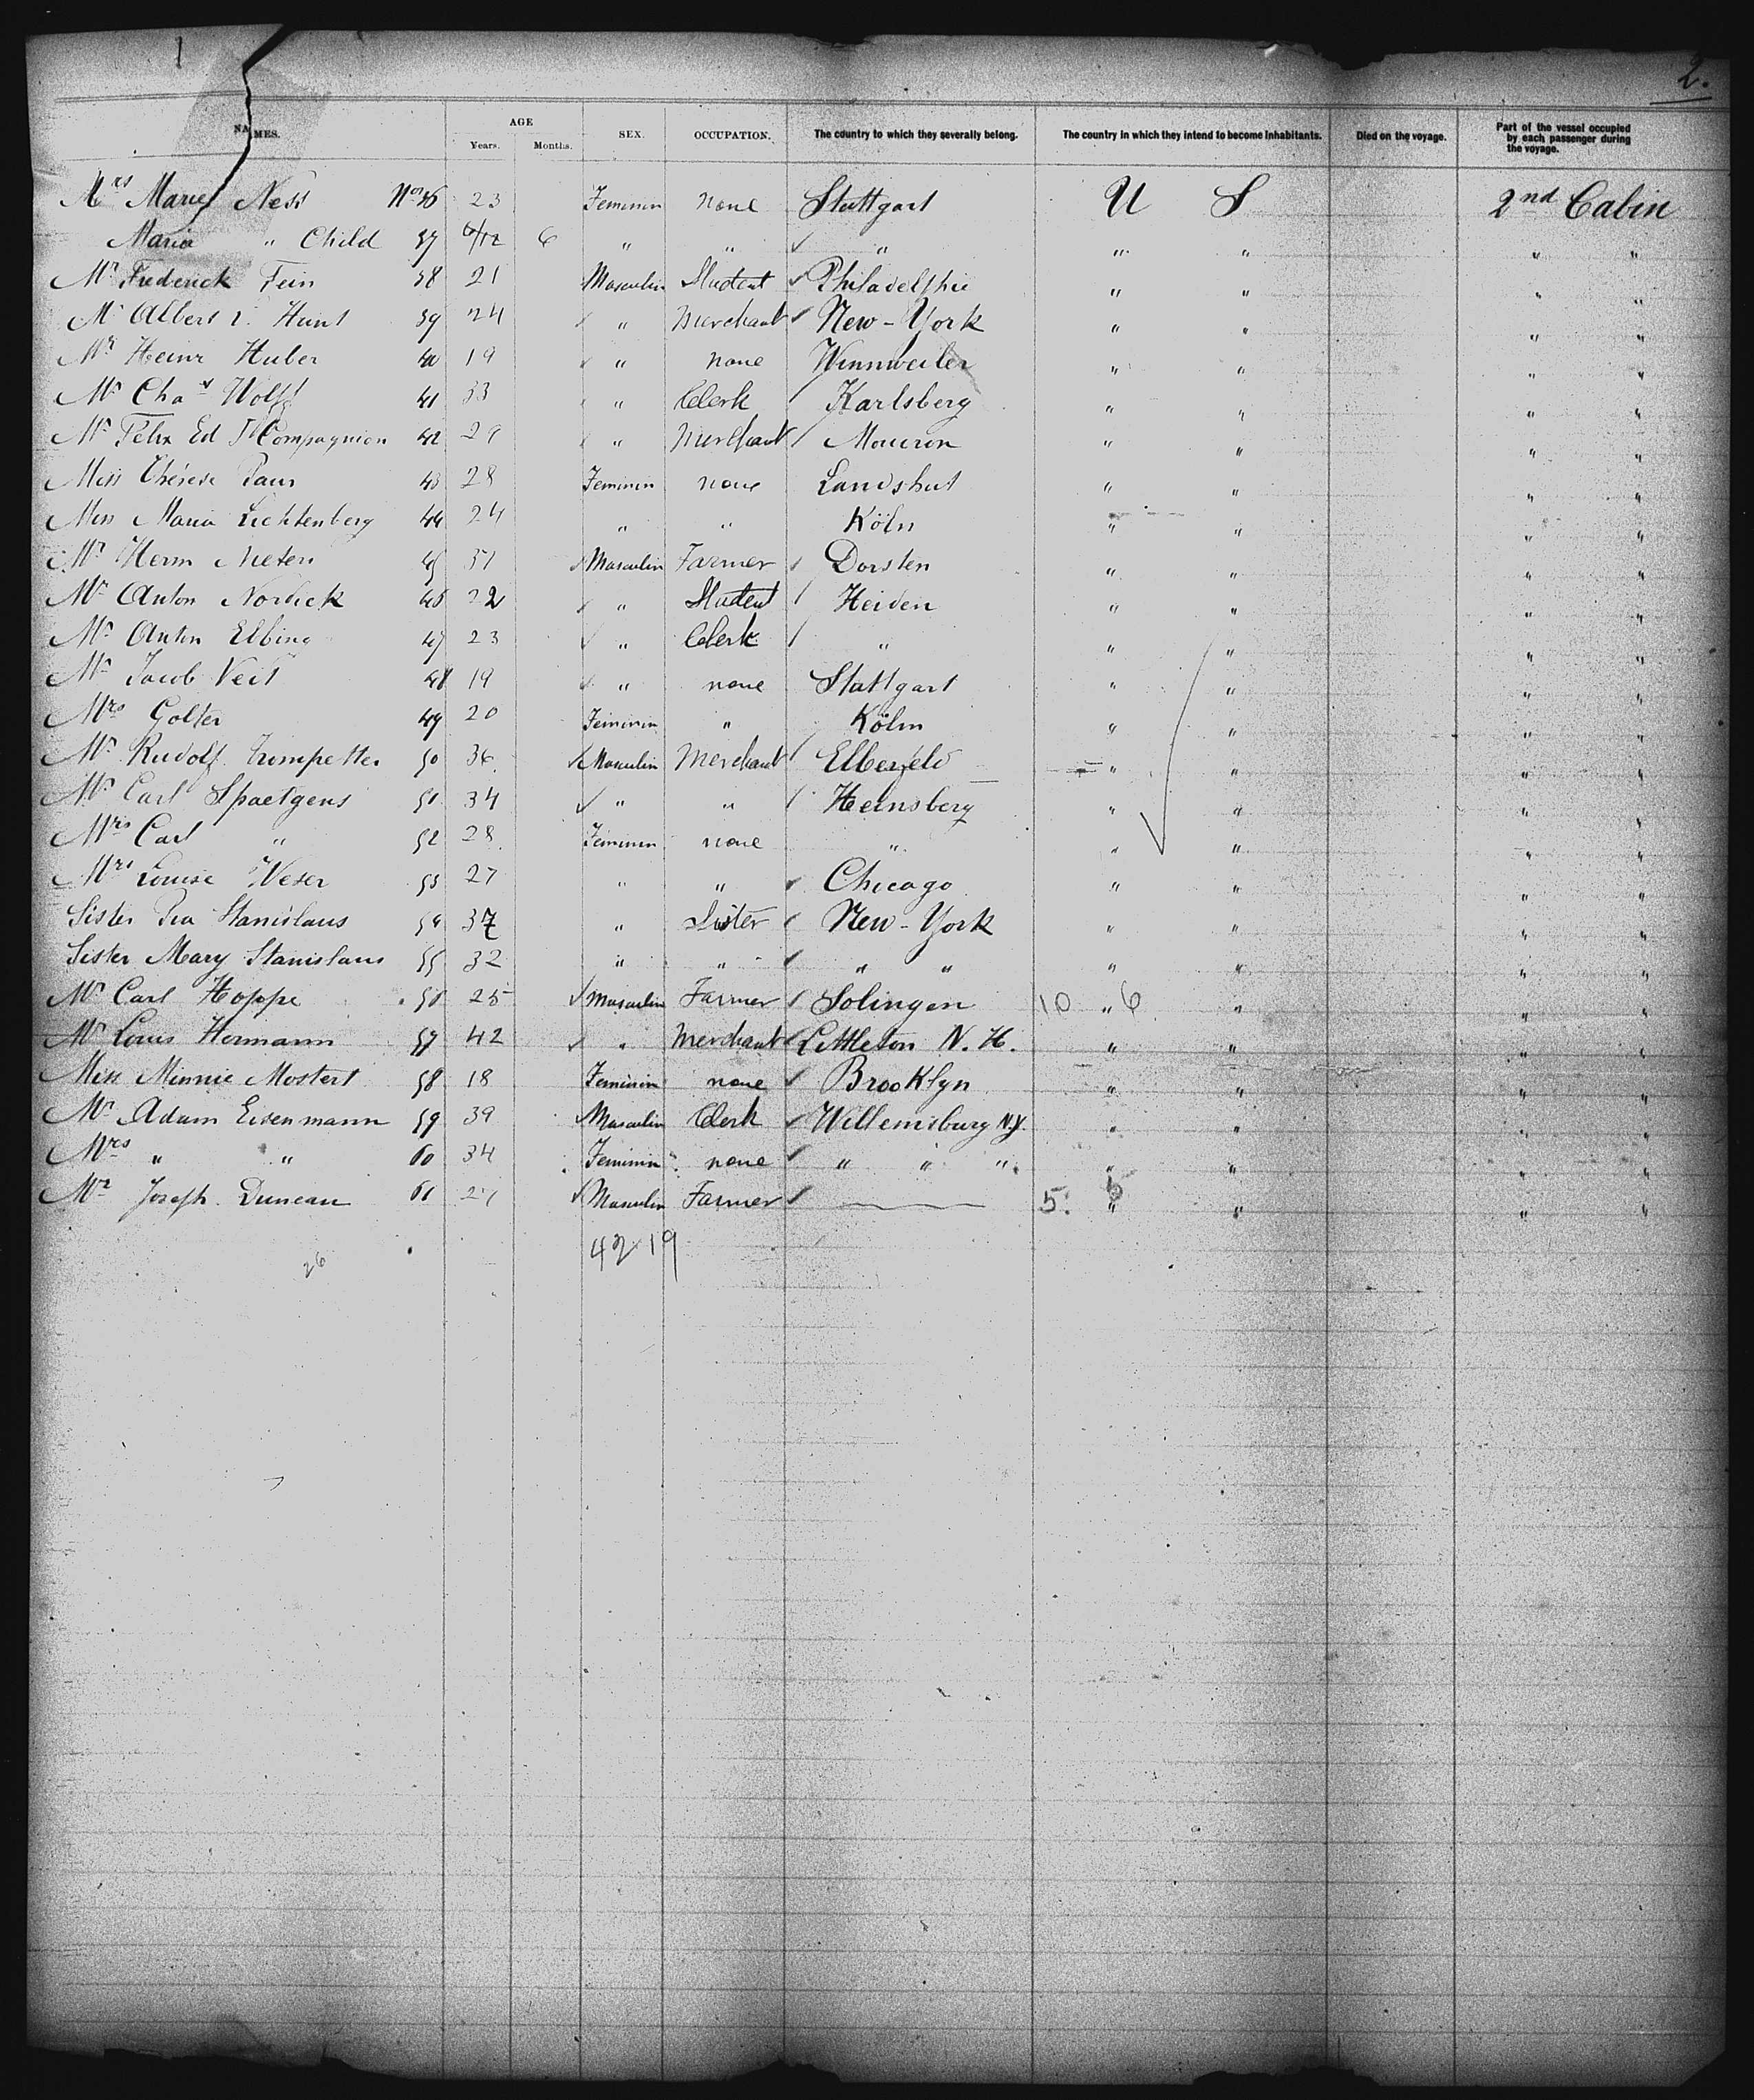 1
2.
NAMES. AGE Years. Months. SEX. OCCUPATION. The country to which they severally belong. The country in which they intend to become inhabitants. Died on the voyage. Part of the vessel occupied by each passenger during the voyage.
Mrs Marie Ness Nos 36 23 Feminin none Stuttgart U S 2nd Cabin
Maria " Child 37 6/12 6 " " " " " " "
Mr Frederick Fein 38 21 Masculin Student Philadelphie " " " "
Mr Albert Hunt 39 24 " Merchant New-York " " " "
Mr Heinr Huber 40 19 " none Winnweiler " " " "
Mr Chas Wolff 41 33 " Clerk Karlsberg " " " "
Mr Felix Ed Compagnion 42 29 " Merchant Mouron " " " "
Miss Thérèse Paur 43 28 Feminin none Landshut " " " "
Miss Maria Lichtenberg 44 24 " " Köln " " " "
Mr Herm 45 Masculin Farmer Dorsten " " " "
Mr Anton Nordick 46 22 " Student Heiden " " " "
Mr Anton Elbing 47 23 " Clerk " " " " "
Mr Jacob Veit 48 19 " none Stuttgart " " " "
Mrs Golter 49 20 Feminin " Köln " " " "
Mr Rudolf Trompetter 50 36 Masculin Merchant Elberfeld " " " "
Mr Carl Spaetgens 51 34 " " Heinsberg " " " "
Mrs Carl " 52 28 Feminin none " " " " "
Mrs Louise Weser 53 27 " " Chicago " " " "
Sister Pia Stanislaus 54 37 " Sister New-York " " " "
Sister Mary Stanislaus 55 32 " " " " " " " "
Mr Carl Hoppe 56 25 Masculin Farmer Solingen 10 " 6 " " "
Mr Louis Hermann 57 42 " Merchant Littleton N. H. " " " "
Miss Minnie Mostert 58 18 Feminin none Brooklyn " " " "
Mr Adam Eisenmann 59 39 Masculin Clerk Willemsburg N.Y. " " " "
Mrs " " 60 34 Feminin none " " " " " " "
Mr Joseph Duncan 61 Masculin Farmer — 5. 6 " " " "
26
42 19